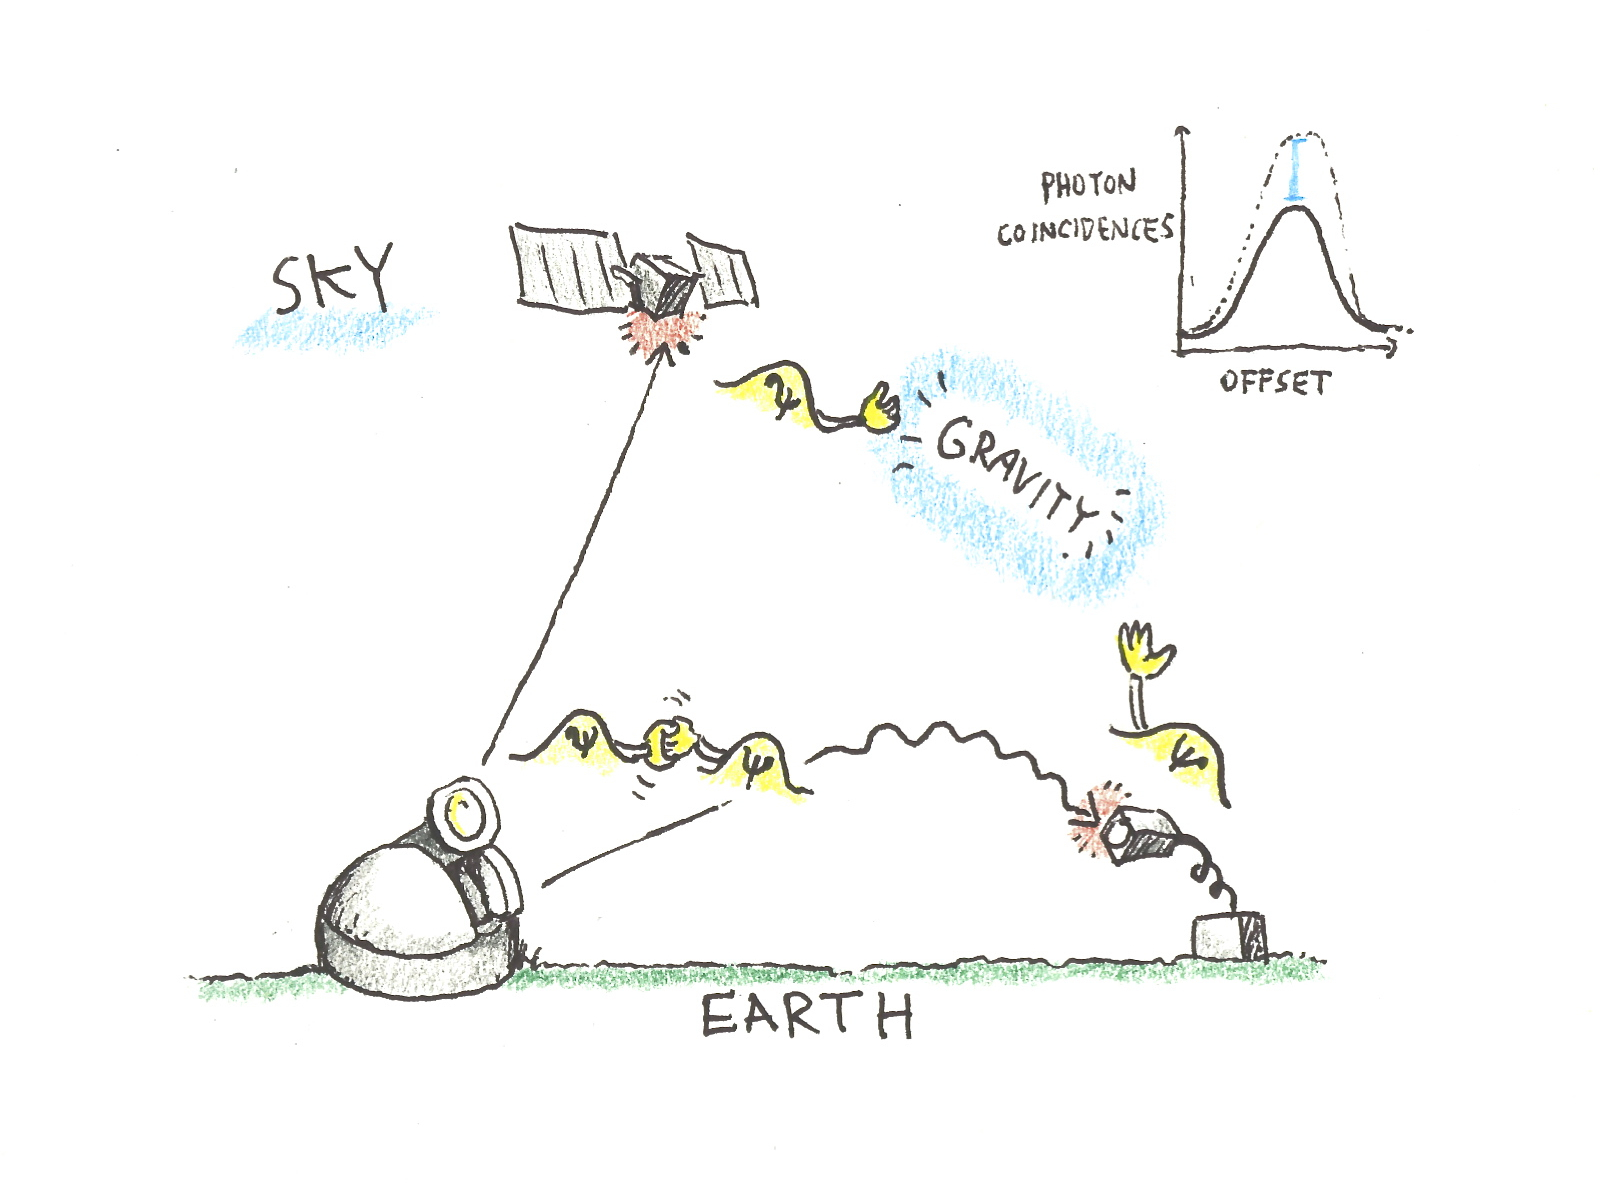 PHOTON
COINCIDENCES
SKY
OFFSET
Ψ
GRAVITY
Ψ
Ψ
Ψ
EARTH